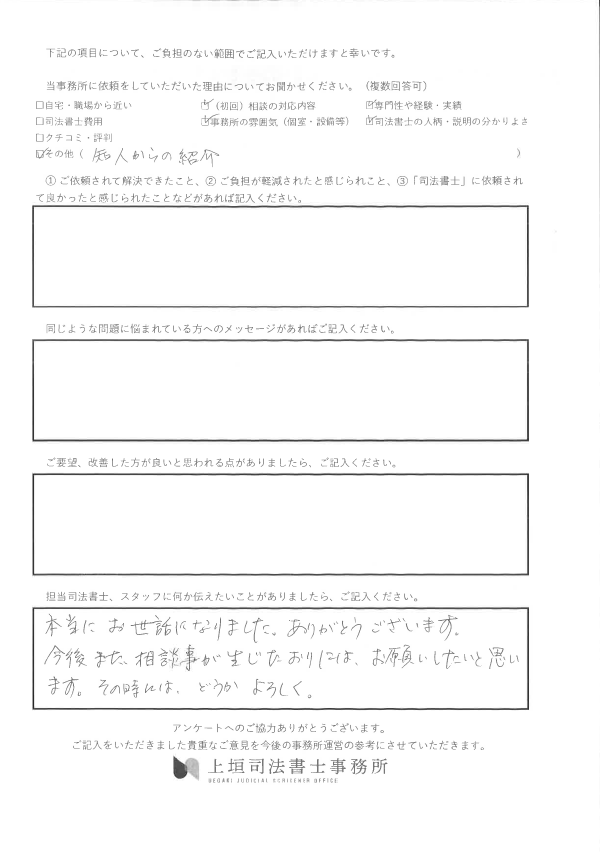 下記の項目について、ご負担のない範囲でご記入いただけますと幸いです。
当事務所に依頼をしていただいた理由についてお聞かせください。（複数回答可）
□自宅・職場から近い ☑（初回）相談の対応内容 ☑専門性や経験・実績
□司法書士費用 ☑事務所の雰囲気（個室・設備等） ☑司法書士の人柄・説明の分かりよさ
□クチコミ・評判
☑その他（ 知人からの紹介 ）
① ご依頼されて解決できたこと、② ご負担が軽減されたと感じられこと、③「司法書士」に依頼され
て良かったと感じられたことなどがあれば記入ください。
同じような問題に悩まれている方へのメッセージがあればご記入ください。
ご要望、改善した方が良いと思われる点がありましたら、ご記入ください。
担当司法書士、スタッフに何か伝えたいことがありましたら、ご記入ください。
本当に お世話になりました。ありがとうございます。
今後また、相談事が生じたおりには、お願いしたいと思い
ます。その時には、どうか よろしく。
アンケートへのご協力ありがとうございます。
ご記入をいただきました貴重なご意見を今後の事務所運営の参考にさせていただきます。
上垣司法書士事務所
UEGAKI JUDICIAL SCRIVENER OFFICE